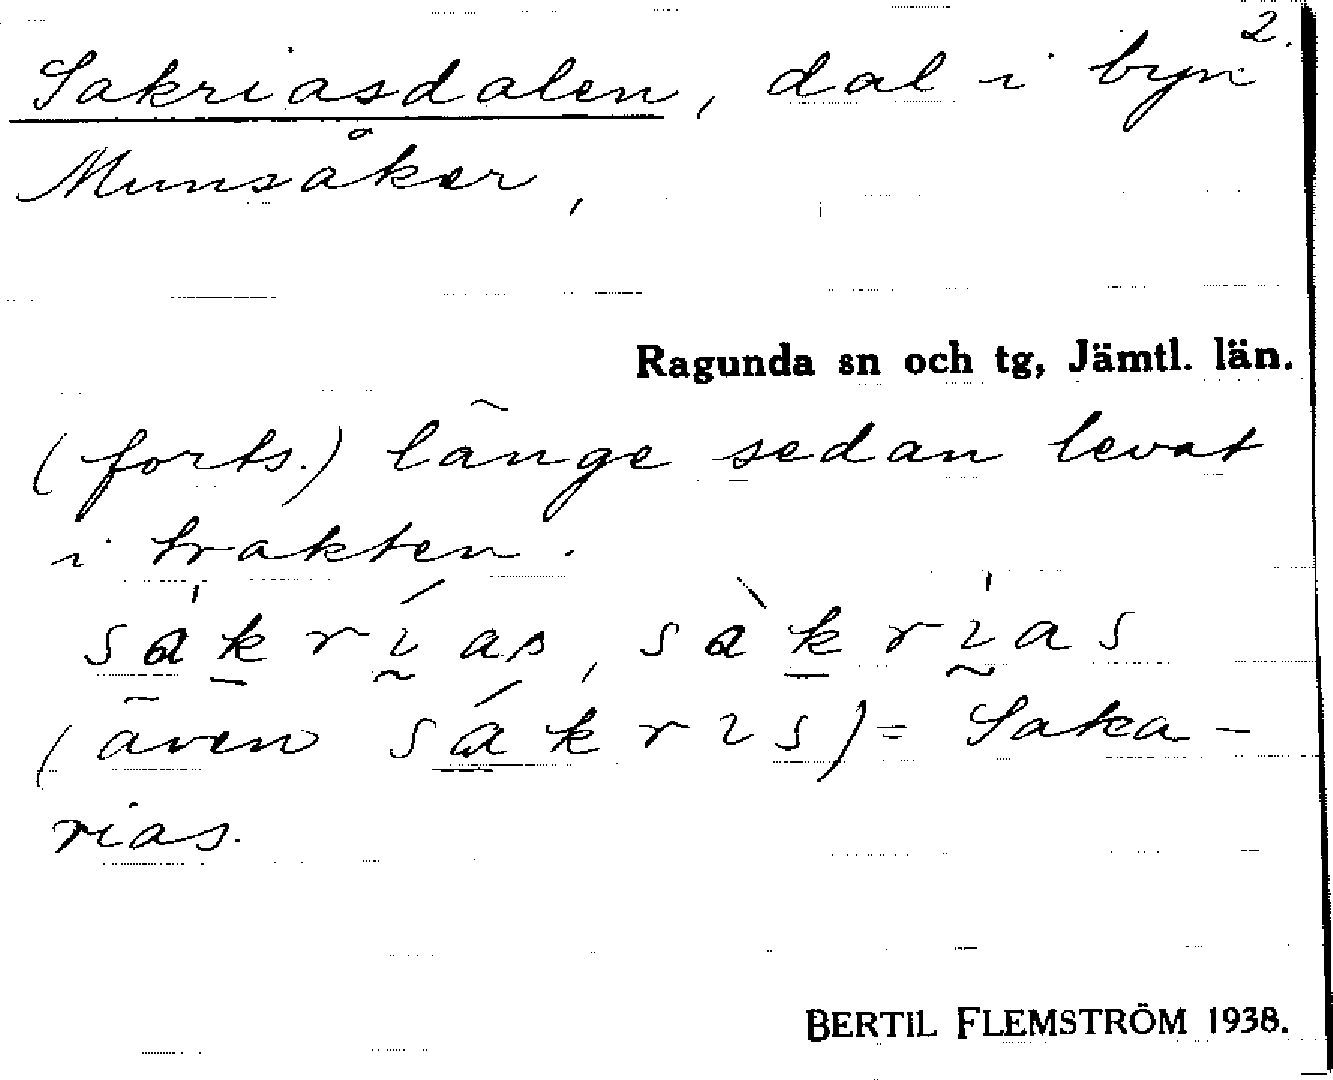 2.
Sakriasdalen, dal i byn
Munsåker,
Ragunda sn och tg, Jämtl. län.
(forts.) länge sedan levat
i trakten.
sa̍krías, sàkri̍as
(även sákrıs) = Saka-
rias.
BERTIL FLEMSTRÖM 1938.